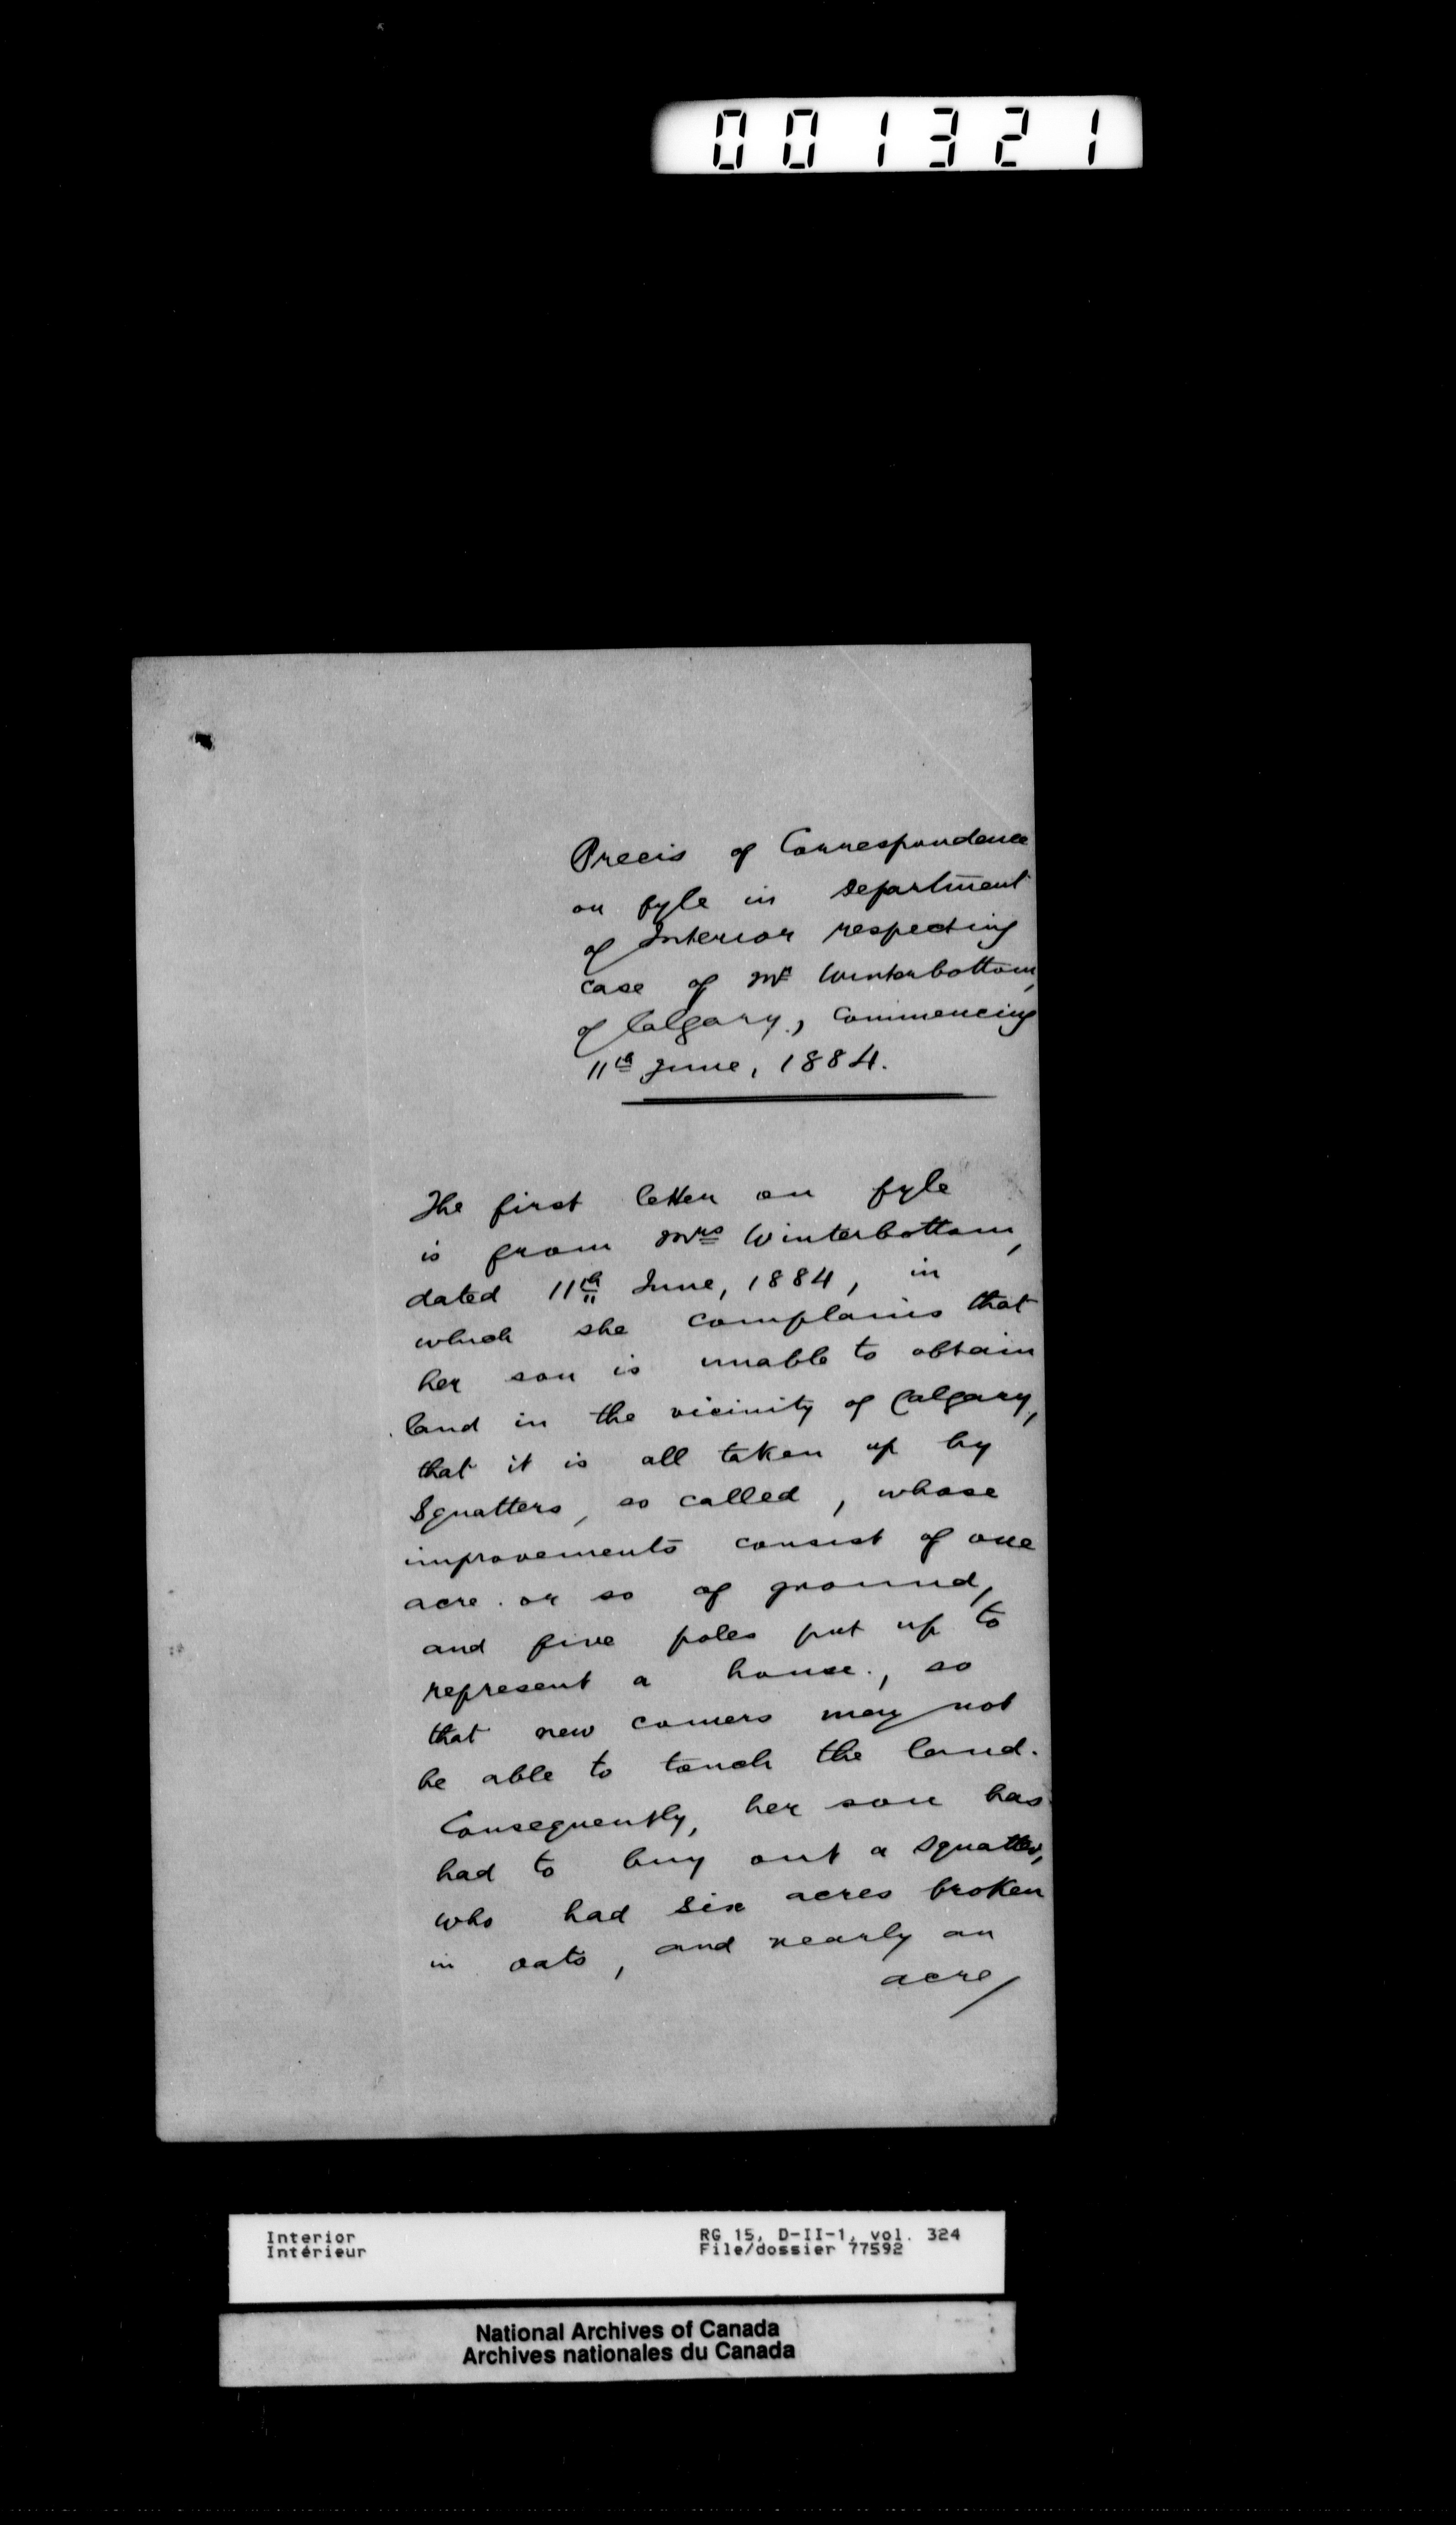 001321
Precis of Correspondence
on fyle in Department
of Interior respecting
case of Mr Winterbottom,
of Calgary, commencing
11th June, 1884.
The first letter on fyle
is from Mrs Winterbottom,
dated 11th June, 1884, in
which she complains that
her son is unable to obtain
land in the vicinity of Calgary,
that it is all taken up by
Squatters, so called, whose
improvements consist of one
acre or so of ground,
and five poles put up to
represent a house, so
that new comers may not
be able to touch the land.
Consequently, her son has
had to buy out a squatter,
who had six acres broken
in oats, and nearly an
acre/
Interior
Intérieur
RG 15, D-II-1, vol. 324
File/dossier 77592
National Archives of Canada
Archives nationales du Canada